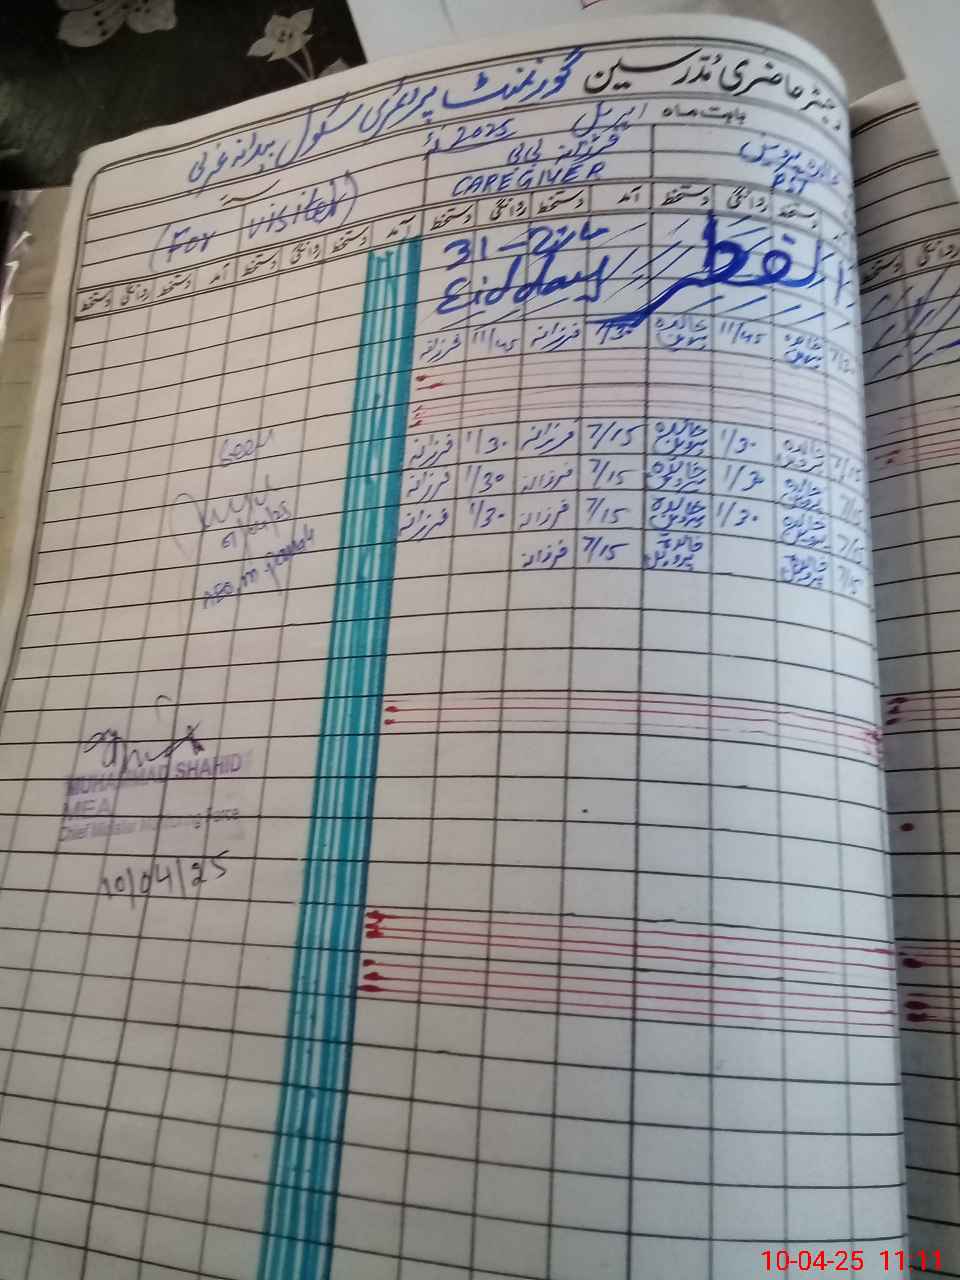 رجسٹر حاضری مدرسین گورنمنٹ پرائمری سکول
بابت ماہ اپریل 2025ء
خالدہ پروین فرزانہ بی بی
PST CAREGIVER (For visitor)
دستخط روانگی دستخط آمد دستخط روانگی دستخط آمد دستخط روانگی دستخط آمد دستخط روانگی دستخط
الفطر
31-مارچ-2
Eid day
7/30 خالدہ پروین 11/45 خالدہ پروین 7/30 فرزانہ 11/45 فرزانہ
7/15 خالدہ پروین 1/30 خالدہ پروین 7/15 فرزانہ 1/30 فرزانہ
7/15 خالدہ پروین 1/30 خالدہ پروین 7/15 فرزانہ 1/30 فرزانہ
7/15 خالدہ پروین 1/30 خالدہ پروین 7/15 فرزانہ 1/30 فرزانہ
7/15 خالدہ پروین خالدہ پروین 7/15 فرزانہ
Seen
MUHAMMAD SHAHID
MEA
Chief Minister Monitoring Force
10/04/25
روانگی
10-04-25 11:11